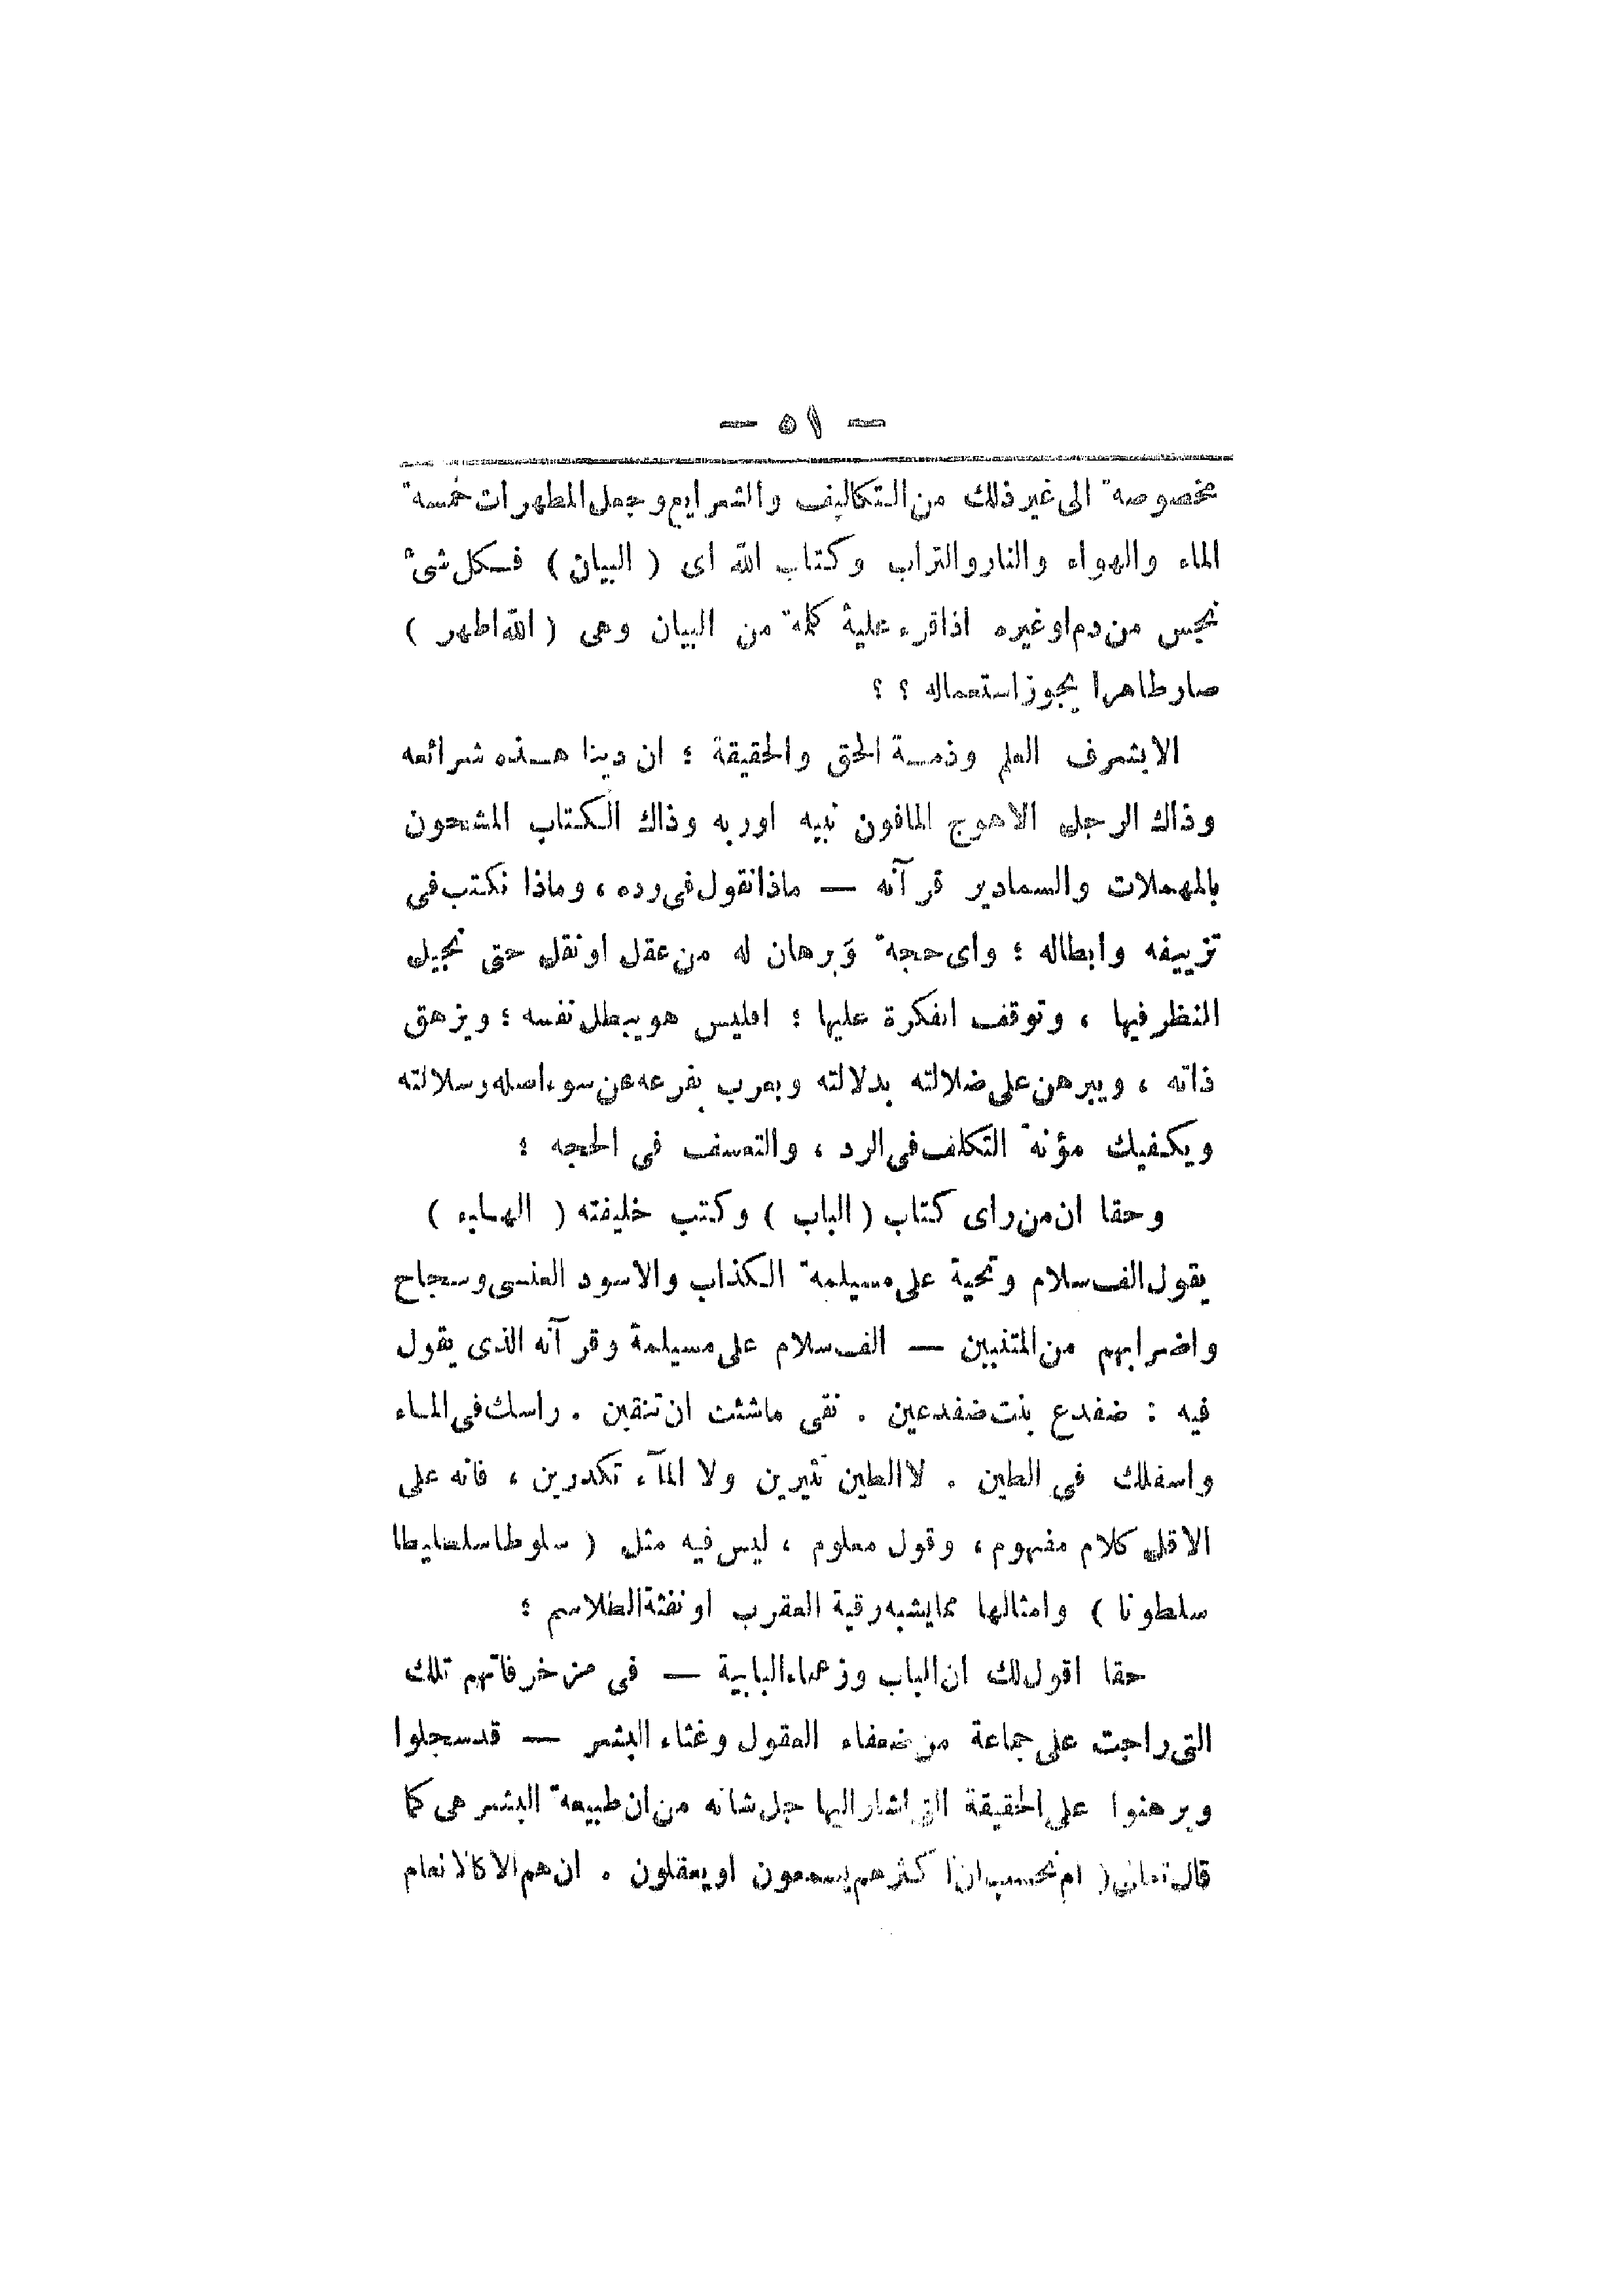 — ٥١ —
مخصوصة الى غير ذلك من التكاليف والشرايع وجعل المطهرات خمسة
الماء والهواء والنار والتراب وكتاب الله اى ( البيان ) فكل شئ
نجس من دم او غيره اذا قرء علية كلمة من البيان وهى ( الله اطهر )
صار طاهرا يجوز استعماله ؟ ؟
الا بشرف العلم وذمة الحق والحقيقة ؛ ان دينا هذه شرائعه
وذاك الرجل الاهوج المافون نبيه او ربه وذاك الكتاب المشحون
بالمهملات والسمادير قرآنه — ماذا نقول فى رده ، وماذا نكتب فى
تزييفه وابطاله ؛ واى حجة وَبرهان له من عقل او نقل حتى نجيل
النظر فيها ، وتوقف الفكرة عليها ؛ افليس هو يبطل نفسه ؛ ويزهق
ذاته ، ويبرهن على ضلالته بدلالته ويعرب بفرعه عن سوء اصله وسلالته
ويكفيك مؤنة التكلف فى الرد ، والتعسف فى الحجه ؛
وحقا ان من راى كتاب ( الباب ) وكتب خليفته ( البهاء )
يقول الف سلام وتحية على مسيلمة الكذاب والاسود العنسى وسجاح
واضرابهم من المتنبين — الف سلام على مسيلمة وقرآنه الذى يقول
فيه : ضفدع بنت ضفدعين . نقى ماشئت ان تنقين . راسك فى الماء
واسفلك فى الطين . لا الطين تثيرين ولا المآء تكدرين ، فانه على
الاقل كلام مفهوم ، وقول معلوم ، ليس فيه مثل ( سلوطا سلطليطا
سلطونا ) وامثالها مما يشبه رقية العقرب او نفثة الطلاسم ؛
حقا اقول لك ان الباب وزعماء البابية — فى خرفاتهم تلك
التى راجت على جماعة من ضعفاء العقول وغثاء البشر — قد سجلوا
وبرهنوا على الحقيقة التى اشار اليها جل شانه من ان طبيعة البشر هى كما
قال تعالى ( ام تحسب ان اكثرهم يسمعون او يعقلون . ان هم الا كالانعام